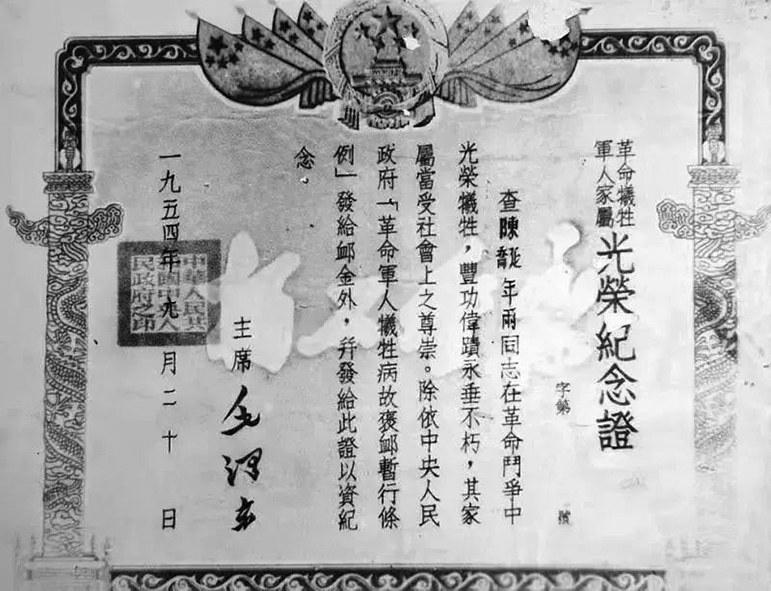 革命犧牲
軍人家屬
光榮紀念證
字第 號
查陳延喬年兩同志在革命鬥爭中
光榮犧牲，豐功偉蹟永垂不朽，其家
屬當受社會上之尊崇。除依中央人民
政府「革命軍人犧牲病故褒卹暫行條
例」發給卹金外，幷發給此證以資紀
念。
主席 毛澤東
一九五四年 月二十日
中華人民共
和國中央人
民政府之印